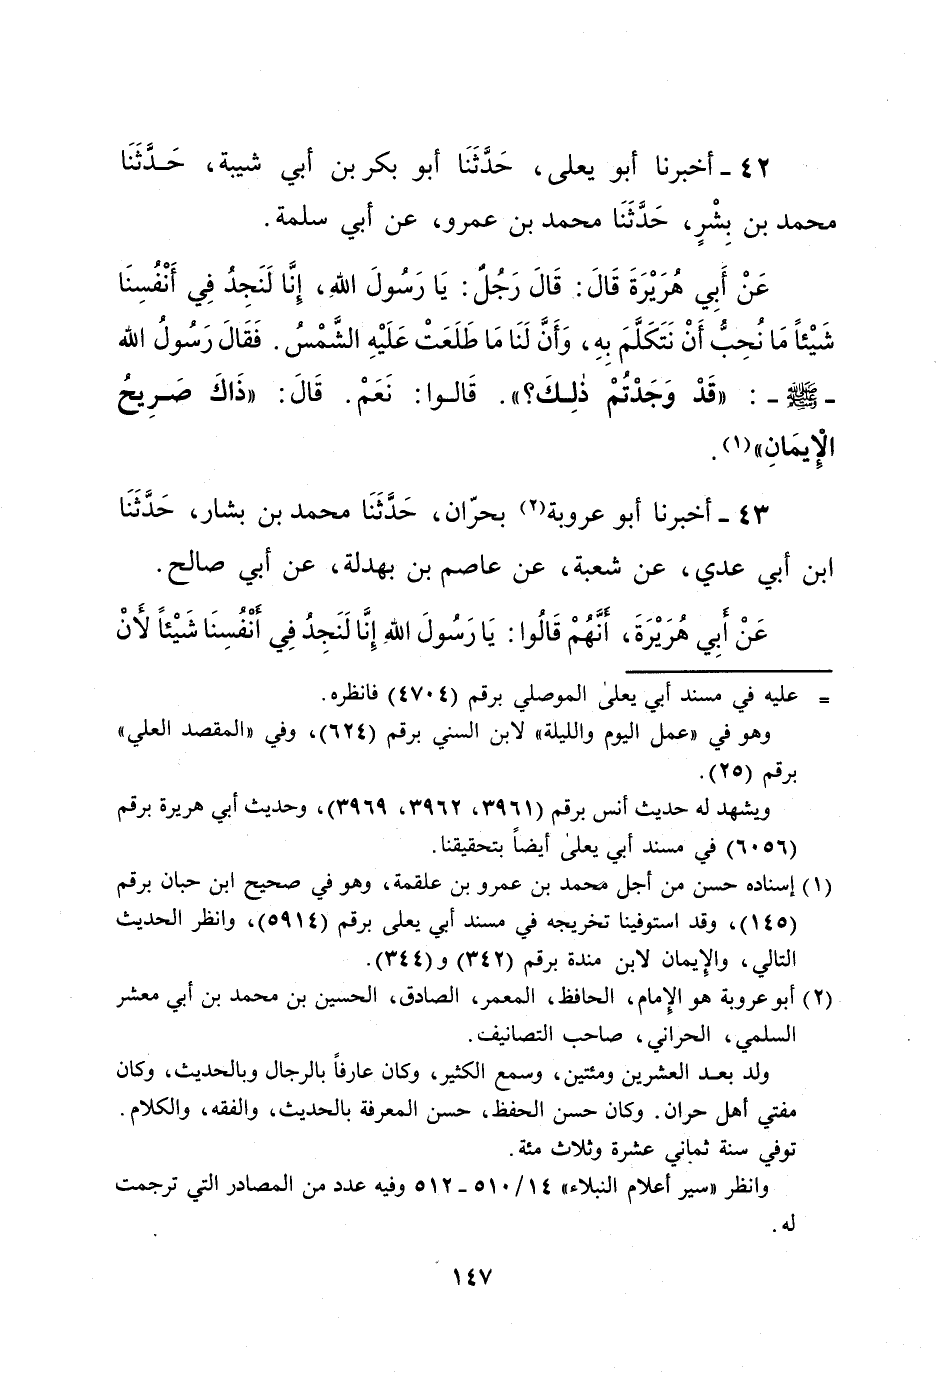 ٤٢ ـ أخبرنا أبو يعلى، حَدَّثَنَا أبو بكر بن أبي شيبة، حَـدَّثَنَا
محمد بن بِشْرٍ، حَدَّثَنَا محمد بن عمرو، عن أبي سلمة.
عَنْ أَبِي هُرَيْرَةَ قَالَ: قَالَ رَجُلٌ: يَا رَسُولَ اللهِ، إِنَّا لَنَجِدُ فِي أَنْفُسِنَا
شَيْئاً مَا نُحِبُّ أَنْ نَتَكَلَّمَ بِهِ، وَأَنَّ لَنَا مَا طَلَعَتْ عَلَيْهِ الشَّمْسُ. فَقَالَ رَسُولُ الله
ـ ﷺ ـ : «قَدْ وَجَدْتُمْ ذٰلِـكَ؟». قَالـوا: نَعَمْ. قَالَ: «ذَاكَ صَـرِيحُ
الْإِيمَانِ»(١).
٤٣ ـ أخبرنا أبو عروبة(٢) بحرّان، حَدَّثَنَا محمد بن بشار، حَدَّثَنَا
ابن أبي عدي، عن شعبة، عن عاصم بن بهدلة، عن أبي صالح.
عَنْ أَبِي هُرَيْرَةَ، أَنَّهُمْ قَالُوا: يَا رَسُولَ اللهِ إِنَّا لَنَجِدُ فِي أَنْفُسِنَا شَيْئاً لأَنْ
= عليه في مسند أبي يعلىٰ الموصلي برقم (٤٧٠٤) فانظره.
وهو في «عمل اليوم والليلة» لابن السني برقم (٦٢٤)، وفي «المقصد العلي»
برقم (٢٥).
ويشهد له حديث أنس برقم (٣٩٦١، ٣٩٦٢، ٣٩٦٩)، وحديث أبي هريرة برقم
(٦٠٥٦) في مسند أبي يعلىٰ أيضاً بتحقيقنا.
(١) إسناده حسن من أجل محمد بن عمرو بن علقمة، وهو في صحيح ابن حبان برقم
(١٤٥)، وقد استوفينا تخريجه في مسند أبي يعلى برقم (٥٩١٤)، وانظر الحديث
التالي، والإيمان لابن مندة برقم (٣٤٢) و(٣٤٤).
(٢) أبو عروبة هو الإمام، الحافظ، المعمر، الصادق، الحسين بن محمد بن أبي معشر
السلمي، الحراني، صاحب التصانيف.
ولد بعـد العشرين ومئتين، وسمع الكثير، وكان عارفاً بالرجال وبالحديث، وكان
مفتي أهل حران. وكان حسن الحفظ، حسن المعرفة بالحديث، والفقه، والكلام.
توفي سنة ثماني عشرة وثلاث مئة.
وانظر «سير أعلام النبلاء» ١٤/ ٥١٠ ـ ٥١٢ وفيه عدد من المصادر التي ترجمت
له.
١٤٧